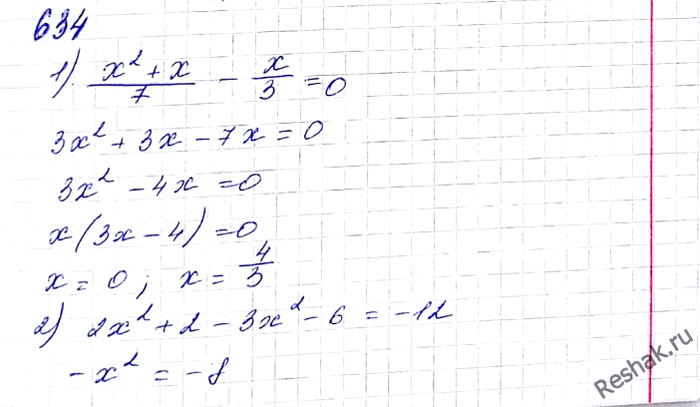 634
1) (x² + x)/7 - x/3 = 0
3x² + 3x - 7x = 0
3x² - 4x = 0
x(3x - 4) = 0
x = 0; x = 4/3
2) 2x² + 2 - 3x² - 6 = -12
-x² = -8
Reshak.ru